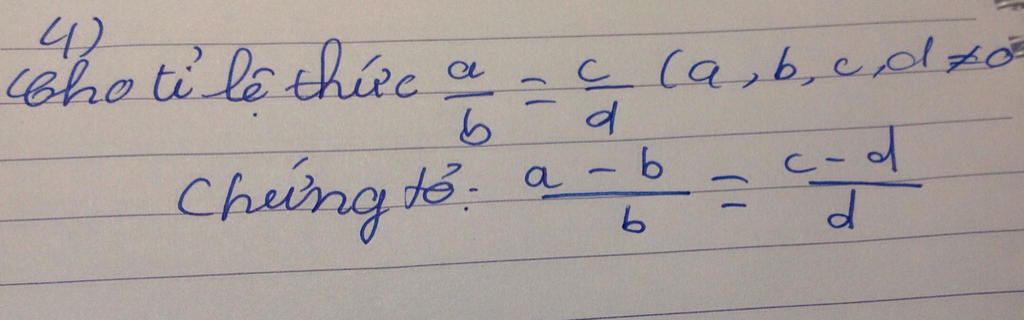 4)
Cho tỉ lệ thức a/b = c/d (a, b, c, d ≠ 0
Chứng tỏ: a - b/b = c - d/d